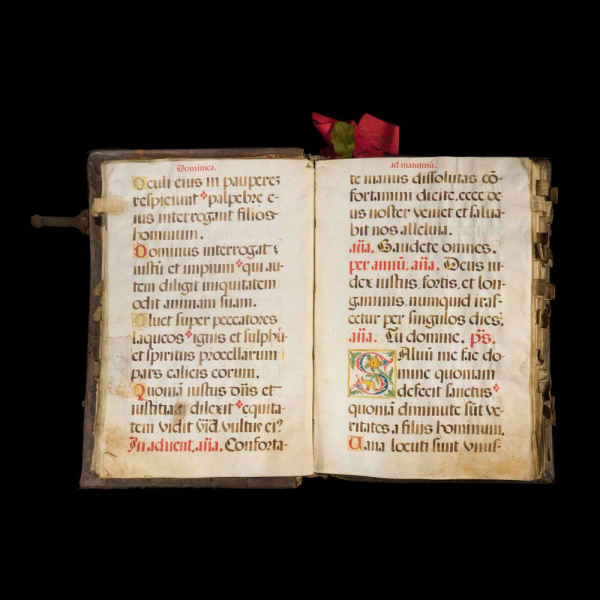 Dominica.
Oculi eius in pauperez
respiciunt palpebre e-
ius interrogant filios
hominum.
Dominus interrogat
iustū et impium qui au-
tem diligit iniquitatem
odit animam suam.
Pluet super peccatores
laqueos ignis et sulphur
et spiritus procellarum
pars calicis eorum.
Quoniā iustus dn̄s et
iustitias dilexit equita-
tem vidit vultus ei?
In aduent. an̄a. Conforta-
ad matutinū.
te manus dissolutas cō-
fortamini dicite. ecce de
us noster veniet et salua-
bit nos alleluia.
an̄a. Gaudete omnes.
per annū. an̄a. Deus iu-
dex iustus, fortis, et lon-
ganimis, numquid iras-
cetur per singulos dies:
an̄a. Tu domine. ps.
Saluū me fac do-
mine quoniam
defecit sanctus
quoniā diminute sūt ve-
ritates a filiis hominum.
Uana locuti sunt vnus-